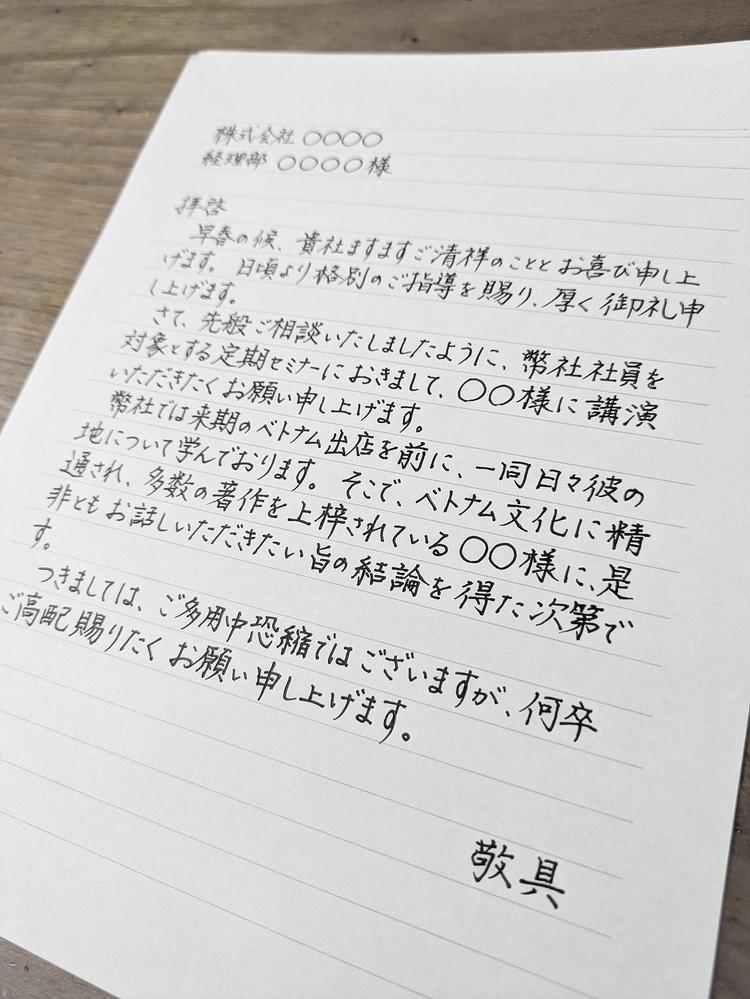 株式会社 〇〇〇〇
経理部 〇〇〇〇様
拝啓
早春の候、貴社ますますご清祥のこととお喜び申し上
げます。日頃より格別のご指導を賜り、厚く御礼申
し上げます。
さて、先般ご相談いたしましたように、幣社社員を
対象とする定期セミナーにおきまして、〇〇様に講演
いただきたくお願い申し上げます。
幣社では来期のベトナム出店を前に、一同日々彼の
地について学んでおります。そこで、ベトナム文化に精
通され、多数の著作を上梓されている〇〇様に、是
非ともお話しいただきたい旨の結論を得た次第で
す。
つきましては、ご多用中恐縮ではございますが、何卒
ご高配賜りたくお願い申し上げます。
敬具